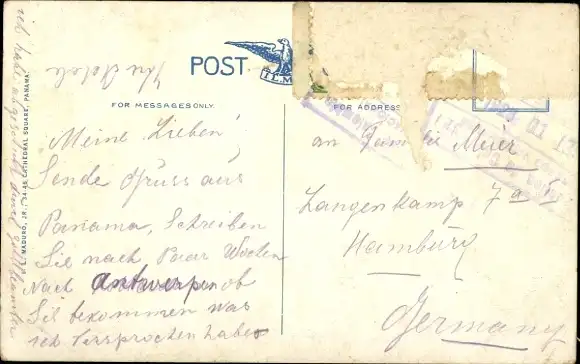 POST
I.L.M.
FOR MESSAGES ONLY.
FOR ADDRESS
MADURO, JR., 34-36 CATHEDRAL SQUARE, PANAMA.
Meine Lieben!
Sende Gruss aus
Panama, Schreiben
Sie nach Paar Wochen
Nach Antwerpen ob
Sie bekommen was
ich Versprochen habe
ich habe abgeschickt
an Familie Meier
Langenkamp 7a
Hamburg
Germany